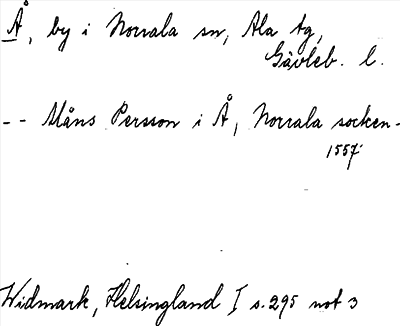 Å, by i Norrala sn, Ala tg,
Gävleb. l.
-- Måns Persson i Å, Norrala socken-
1557
Widmark, Helsingland I s. 295 not 3